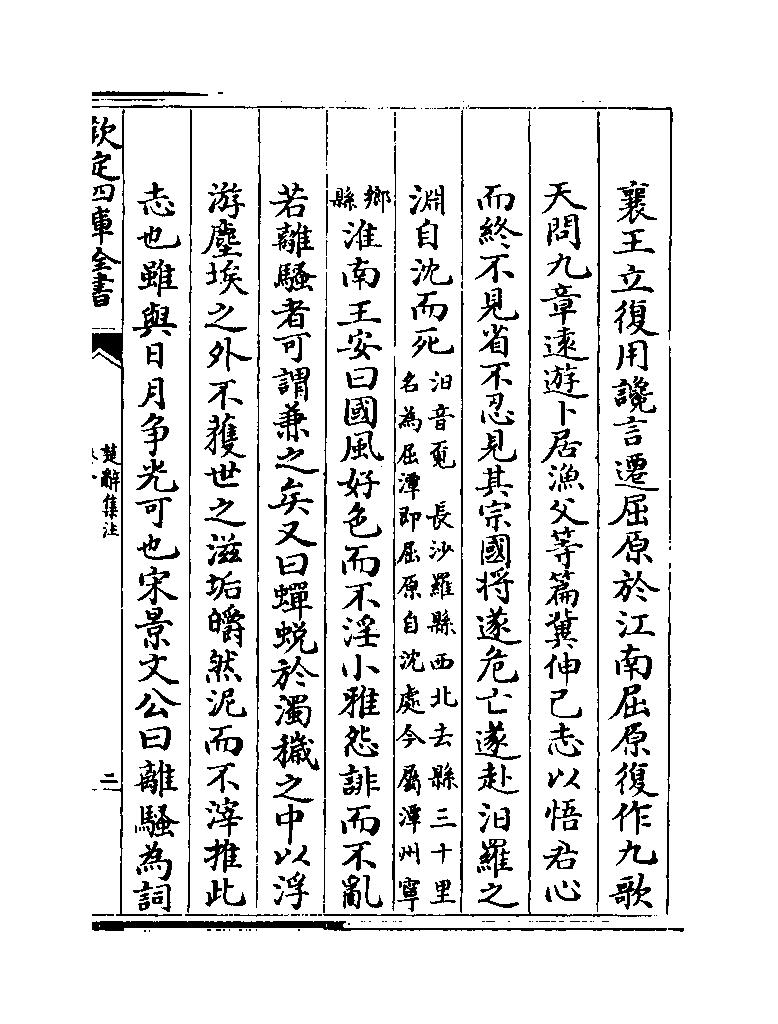 襄王立復用讒言遷屈原於江南屈原復作九歌
天問九章逺遊卜居漁父等篇冀伸己志以悟君心
而終不見省不忍見其宗國將遂危亡遂赴汨羅之
淵自沈而死汨音覔　長沙羅縣西北去縣三十里
名為屈潭即屈原自沈處今屬潭州寧
鄉縣淮南王安曰國風好色而不淫小雅怨誹而不亂
若離騷者可謂兼之矣又曰蟬蛻於濁穢之中以浮
游塵埃之外不獲世之滋垢皭然泥而不滓推此
志也雖與日月争光可也宋景文公曰離騷為詞
欽定四庫全書
楚辭集注
二